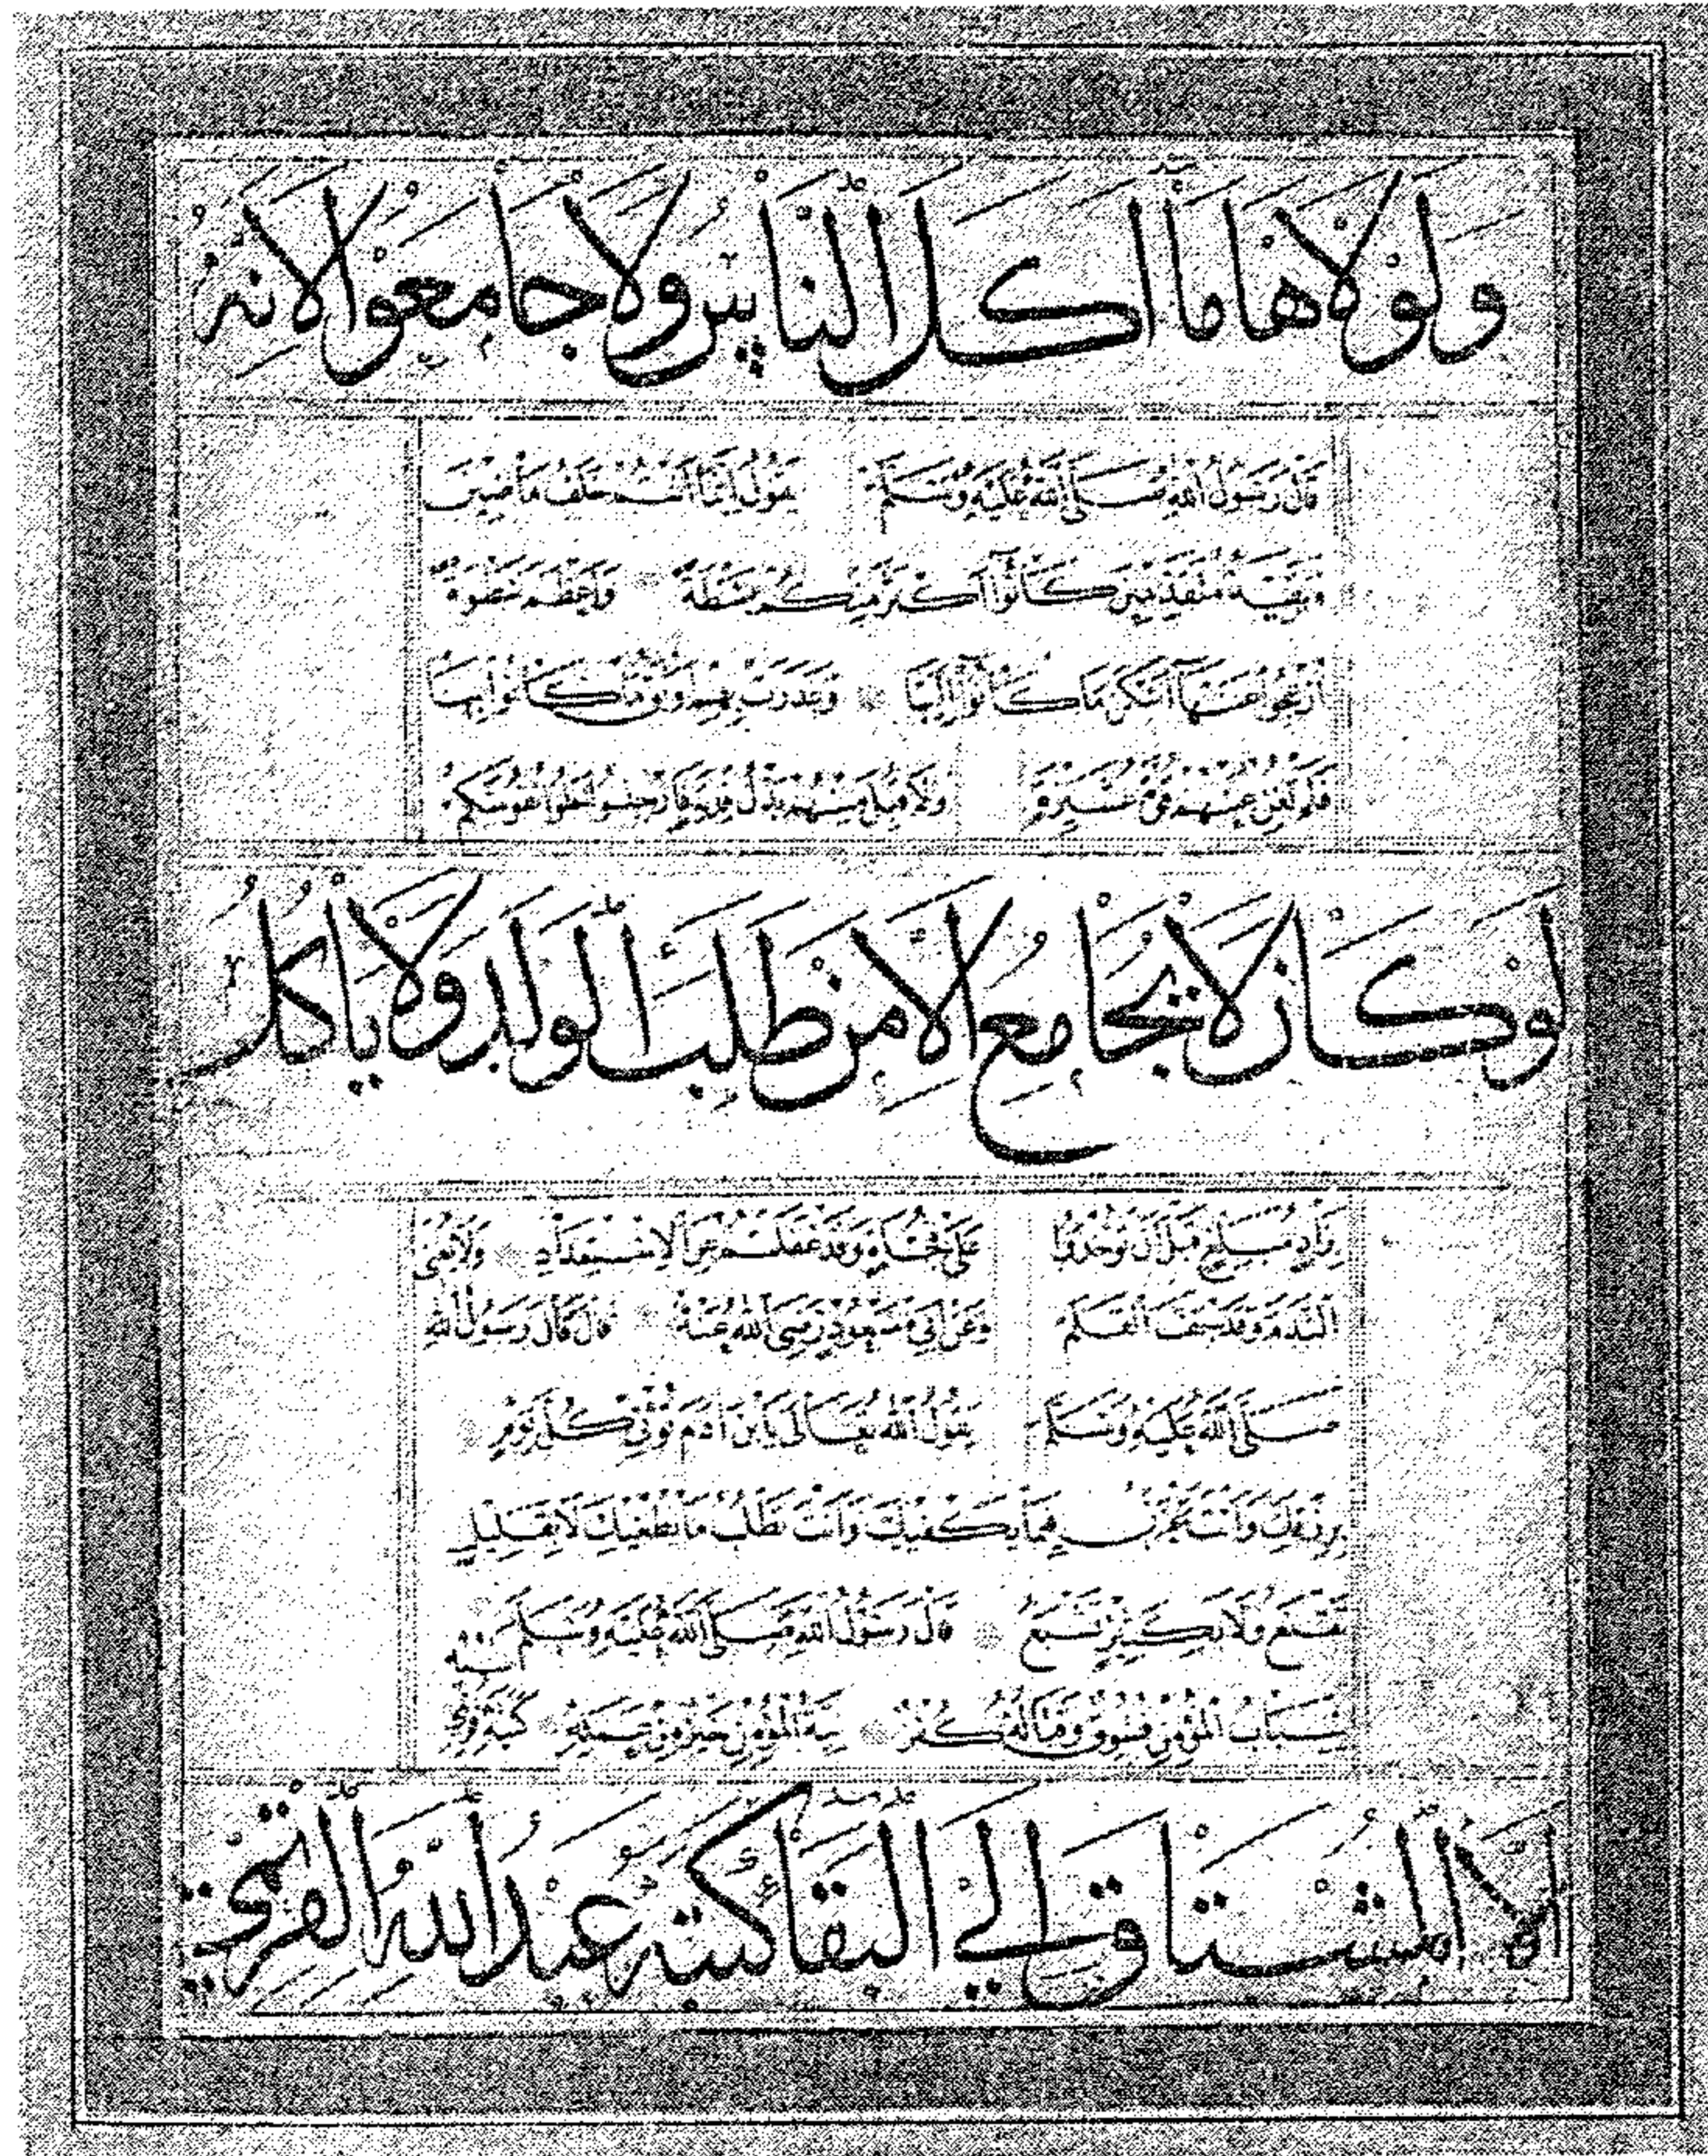 ولولاها ما أكل الناس ولا جامعوا لأنه
قال رسول الله صلى الله عليه وسلم يقول إنما أنتم خلف ماضين
وبقية متقدمين كانوا أكثر منكم بسطة وأعظم سطوة
أزعجوا عنها أسكن ما كانوا إليها وغدرت بهم أوثق ما كانوا بها
فلم تغن عنهم قوة عشيرة ولا قبل منهم بذل فدية فارحلوا نفوسكم
لو كان لا يجامع إلا من طلب الولد ولا يأكل
بزاد مبلغ قبل أن تؤخذوا على فجأة وقد غفلتم عن الاستعداد ولا يغني
الندم وقد جف القلم وعن ابي مسعود رضي الله عنه قال قال رسول الله
صلى الله عليه وسلم يقول الله تعالى يا ابن آدم تؤتى كل يوم
برزقك وأنت تحزن فيما يكفيك وأنت تطلب ما يطغيك لا بقليل
تقنع ولا بكثير تشبع قال رسول الله صلى الله عليه وسلم
سباب المؤمن فسوق وقتاله كفر نية المؤمن خير من كتبه
المشتاق إلى البقا كتبه عبد الله القريمي